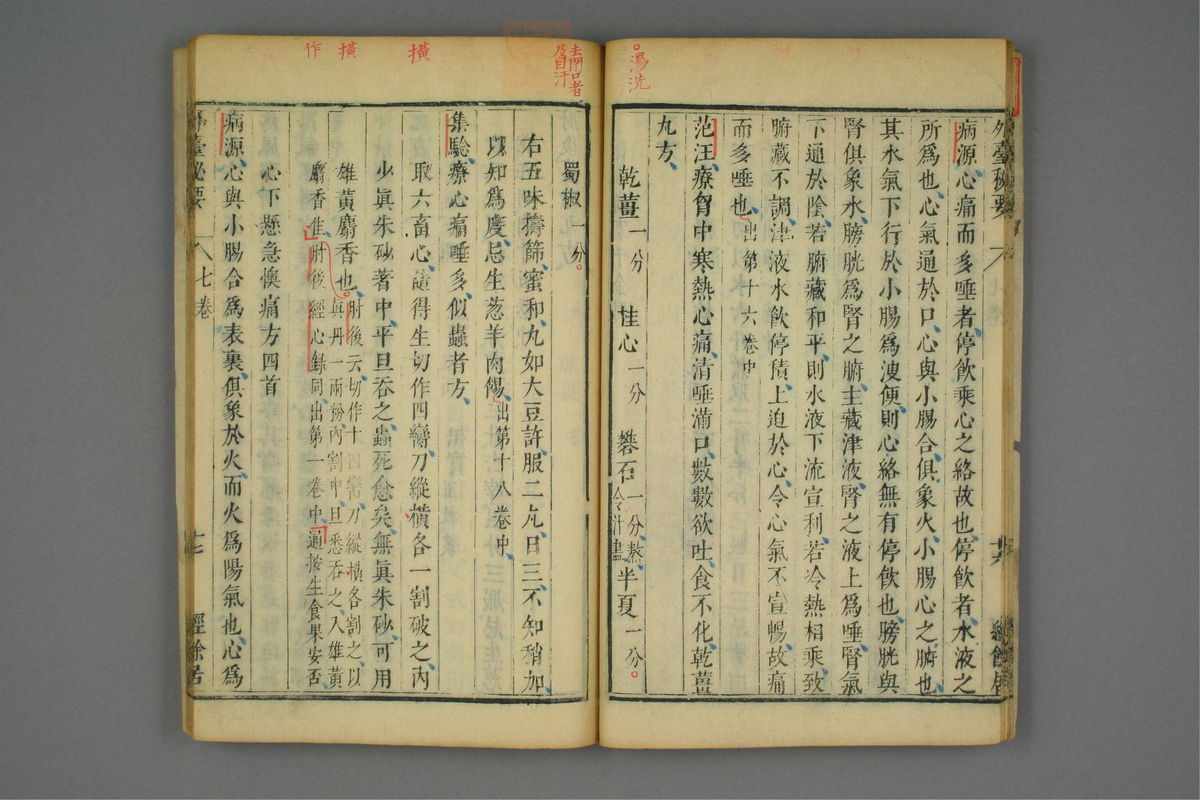 外臺秘要
病源心痛而多唾者停飲乘心之絡故也停飲者水液之
所爲也心氣通於口心與小腸合俱象火小腸心之腑也
其水氣下行於小腸爲溲便則心絡無有停飲也膀胱與
腎俱象水膀胱爲腎之腑主藏津液腎之液上爲唾腎氣
下通於陰若腑藏和平則水液下流宣利若冷熱相乘致
腑藏不調津液水飲停積上迫於心令心氣不宣暢故痛
而多唾也出第十六卷中
范汪療胷中寒熱心痛清唾滿口數數欲吐食不化乾薑
丸方
乾薑一分 桂心一分 礬石一分熬令汁盡 半夏一分
湯洗
蜀椒一分
去閉口者
及目汗
右五味擣篩蜜和丸如大豆許服二丸日三不知稍加
以知爲度忌生葱羊肉餳出第十八卷中
集驗療心痛唾多似蟲者方
取六畜心隨得生切作四臠刀縱橫各一割破之內
少眞朱砂著中平旦吞之蟲死愈矣無眞朱砂可用
雄黃麝香也肘後云切作十四臠刀縱橫各割之以
眞丹一兩粉內割中旦悉吞之入雄黃
麝香佳肘後經心録同出第一卷中通按生食果安否
橫
橫
作
心下懸急懊痛方四首
病源心與小腸合爲表裏俱象於火而火爲陽氣也心爲
外臺秘要
七卷
十七
經餘居